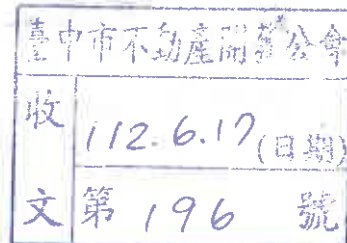 臺中市不動產開發公會
收文
112.6.17(日期)
第 196 號